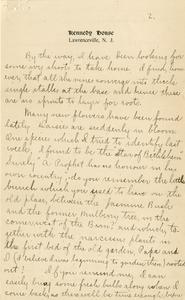 2.
Kennedy House
Lawrenceville, N. J.
By the way, I have been looking for
some ivy shoots to take home. I find, how-
ever, that all the vines converge into thick
single stalks at the base and hence there
are no sprouts to layer for roots.
Many new flowers have been found
lately. Daisies are suddenly in bloom.
One species which I tried to identify last
week, I found to be the Star of Bethlehem.
Surely "A Prophet has no honour in his
own country"; do you remember the little
bunch which you used to have on the
old place, between the Jasmine Bush
and the former Mulberry tree, in the
of the Barn? and which, to-
gether with the narcissus plants in
the first bed of the old garden, Papa and
I (I believe) was beginning to garden, then rooted
out!) If you remind me, I can
easily buy some fresh bulbs when I
come back, as there will be time enough,